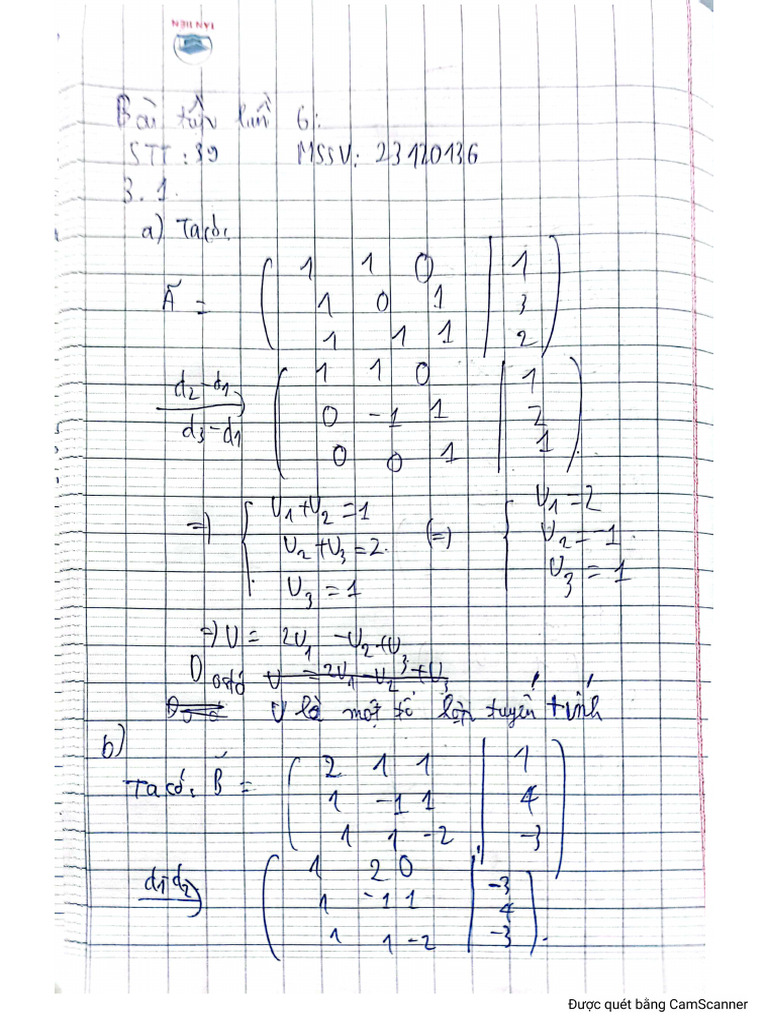 TAN TIEN
Bài tập lần 6:
STT: 39 MSSV: 23120136
3.1.
a) Ta có:
Ã = ( 1 1 0 | 1 )
( 1 0 1 | 3 )
( 1 1 1 | 2 )
d2-d1
d3-d1
( 1 1 0 | 1 )
( 0 -1 1 | 2 )
( 0 0 1 | 1 )
=> { U1+U2=1
U2+U3=2.
U3=1
(=) { U1=2
U2=-1.
U3=1
=) U = 2U1 -U2+U3
Do đó U = 2U1 - U2 + U3
U là một tổ hợp tuyến tính
b)
Ta có: B̃ = ( 2 1 1 | 1 )
( 1 -1 1 | 4 )
( 1 1 -2 | -3 )
d1-d2
( 1 2 0 | -3 )
( 1 -1 1 | 4 )
( 1 1 -2 | -3 ).
Được quét bằng CamScanner